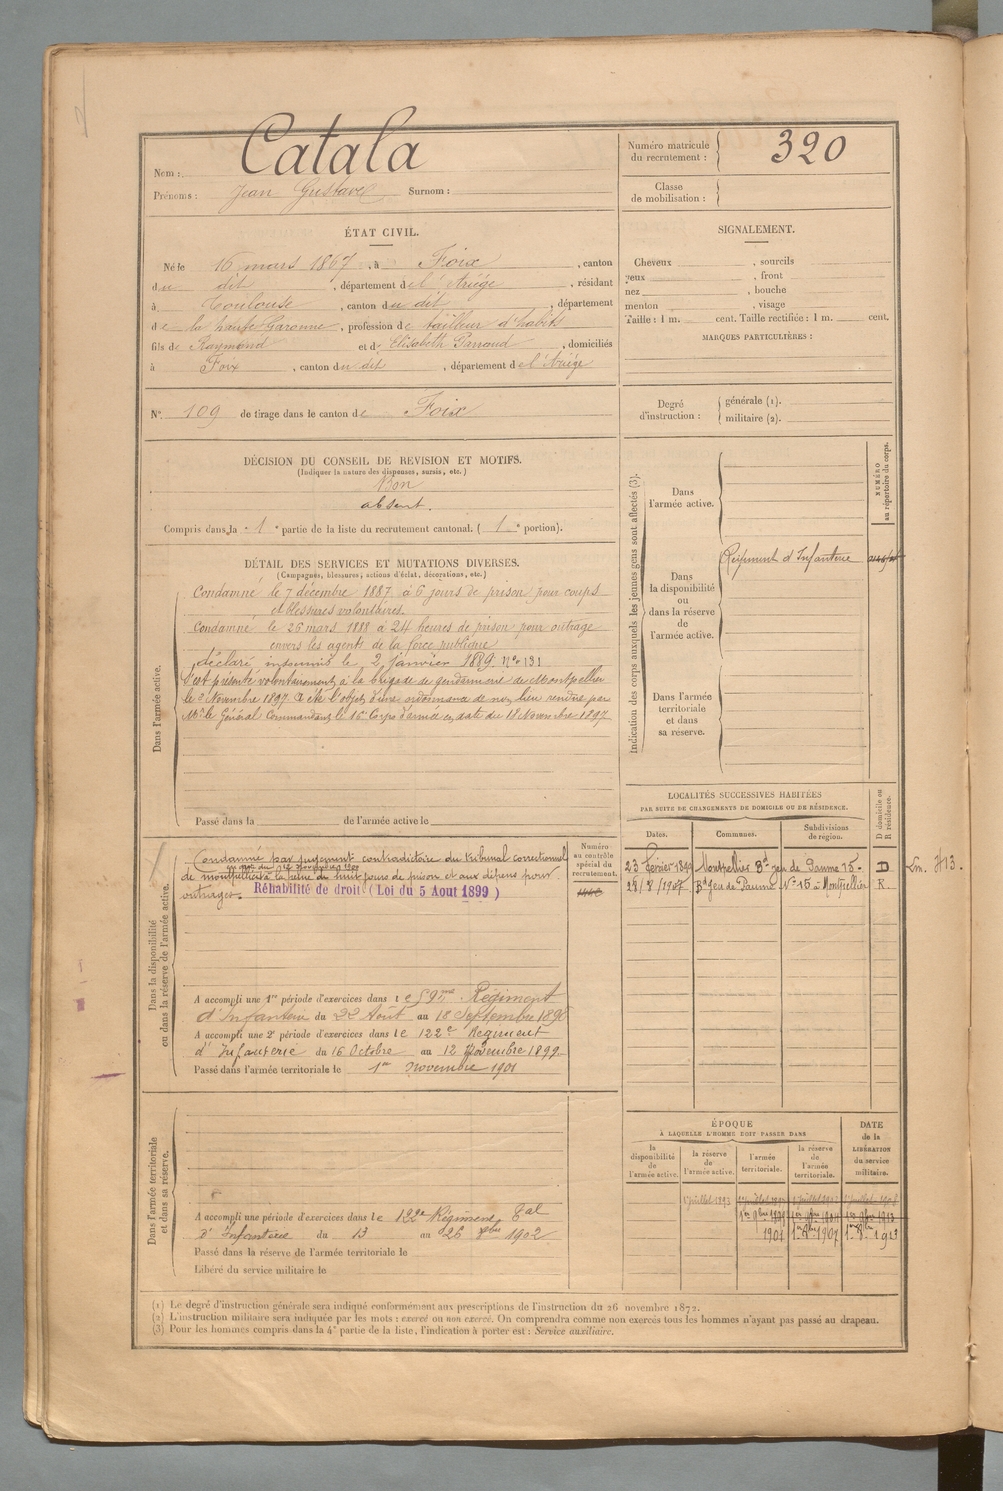 Nom : Catala
Prénoms : Jean Gustave Surnom :
Numéro matricule du recrutement : 320
Classe de mobilisation :
ÉTAT CIVIL.
Né le 16 mars 1867, à Foix, canton
du dit, département de l'Ariège, résidant
à Toulouse, canton du dit, département
de la haute Garonne, profession de tailleur d'habits
fils de Raymond et de Elisabeth Garraud, domiciliés
à Foix, canton du dit, département de l'Ariège
N° 109 de tirage dans le canton de Foix
SIGNALEMENT.
Cheveux , sourcils
yeux , front
nez , bouche
menton , visage
Taille : 1 m. cent. Taille rectifiée : 1 m. cent.
MARQUES PARTICULIÈRES :
Degré d'instruction : générale (1).
militaire (2).
DÉCISION DU CONSEIL DE REVISION ET MOTIFS.
(Indiquer la nature des dispenses, sursis, etc.)
Bon
absent.
Compris dans la 1e partie de la liste du recrutement cantonal. (1e portion).
DÉTAIL DES SERVICES ET MUTATIONS DIVERSES.
(Campagnes, blessures, actions d'éclat, décorations, etc.)
Dans l'armée active.
Condamné le 7 décembre 1887 à 6 jours de prison pour coups
et blessures volontaires.
Condamné le 26 mars 1888 à 24 heures de prison pour outrage
envers les agents de la force publique
déclaré insoumis le 2 janvier 1889. N° 131
S'est présenté volontairement à la brigade de gendarmerie de Montpellier
le 3 Novembre 1897. A été l'objet d'une ordonnance de non lieu rendue par
Mr le Général Commandant le 16e Corps d'armée en date du 18 Novembre 1897
Passé dans la de l'armée active le
Indication des corps auxquels les jeunes gens sont affectés (3).
NUMÉRO au répertoire du corps.
Dans l'armée active.
Dans la disponibilité ou dans la réserve de l'armée active.
Régiment d'Infanterie
Dans l'armée territoriale et dans sa réserve.
LOCALITÉS SUCCESSIVES HABITÉES
PAR SUITE DE CHANGEMENTS DE DOMICILE OU DE RÉSIDENCE.
D domicile ou R résidence.
Dates. Communes. Subdivisions de région.
23 février Montpellier Bd jeu de Paume 15. D
28/8/1907 Bd Jeu de Paume N° 15 à Montpellier R.
Dans la disponibilité ou dans la réserve de l'armée active.
Numéro au contrôle spécial du recrutement.
Condamné par jugement contradictoire du tribunal correctionnel
de Montpellier à la peine de huit jours de prison et aux dépens pour
outrages.
Réhabilité de droit (Loi du 5 Aout 1899)
A accompli une 1re période d'exercices dans le 59me Régiment
d'Infanterie du 22 Août au 18 Septembre 1898
A accompli une 2e période d'exercices dans le 122e Régiment
d'Infanterie du 16 Octobre au 12 Novembre 1899
Passé dans l'armée territoriale le 1er Novembre 1901
Dans l'armée territoriale et dans sa réserve.
A accompli une période d'exercices dans le 122e Régiment tal
d'Infanterie du 13 au 26 8bre 1902
Passé dans la réserve de l'armée territoriale le
Libéré du service militaire le
ÉPOQUE
À LAQUELLE L'HOMME DOIT PASSER DANS
DATE de la LIBÉRATION du service militaire.
la disponibilité de l'armée active. la réserve de l'armée active. l'armée territoriale. la réserve de l'armée territoriale.
1 juillet 1893
1er 9bre 1901
1901 1907 1913
(1) Le degré d'instruction générale sera indiqué conformément aux prescriptions de l'instruction du 26 novembre 1872.
(2) L'instruction militaire sera indiquée par les mots : exercé ou non exercé. On comprendra comme non exercés tous les hommes n'ayant pas passé au drapeau.
(3) Pour les hommes compris dans la 4e partie de la liste, l'indication à porter est : Service auxiliaire.